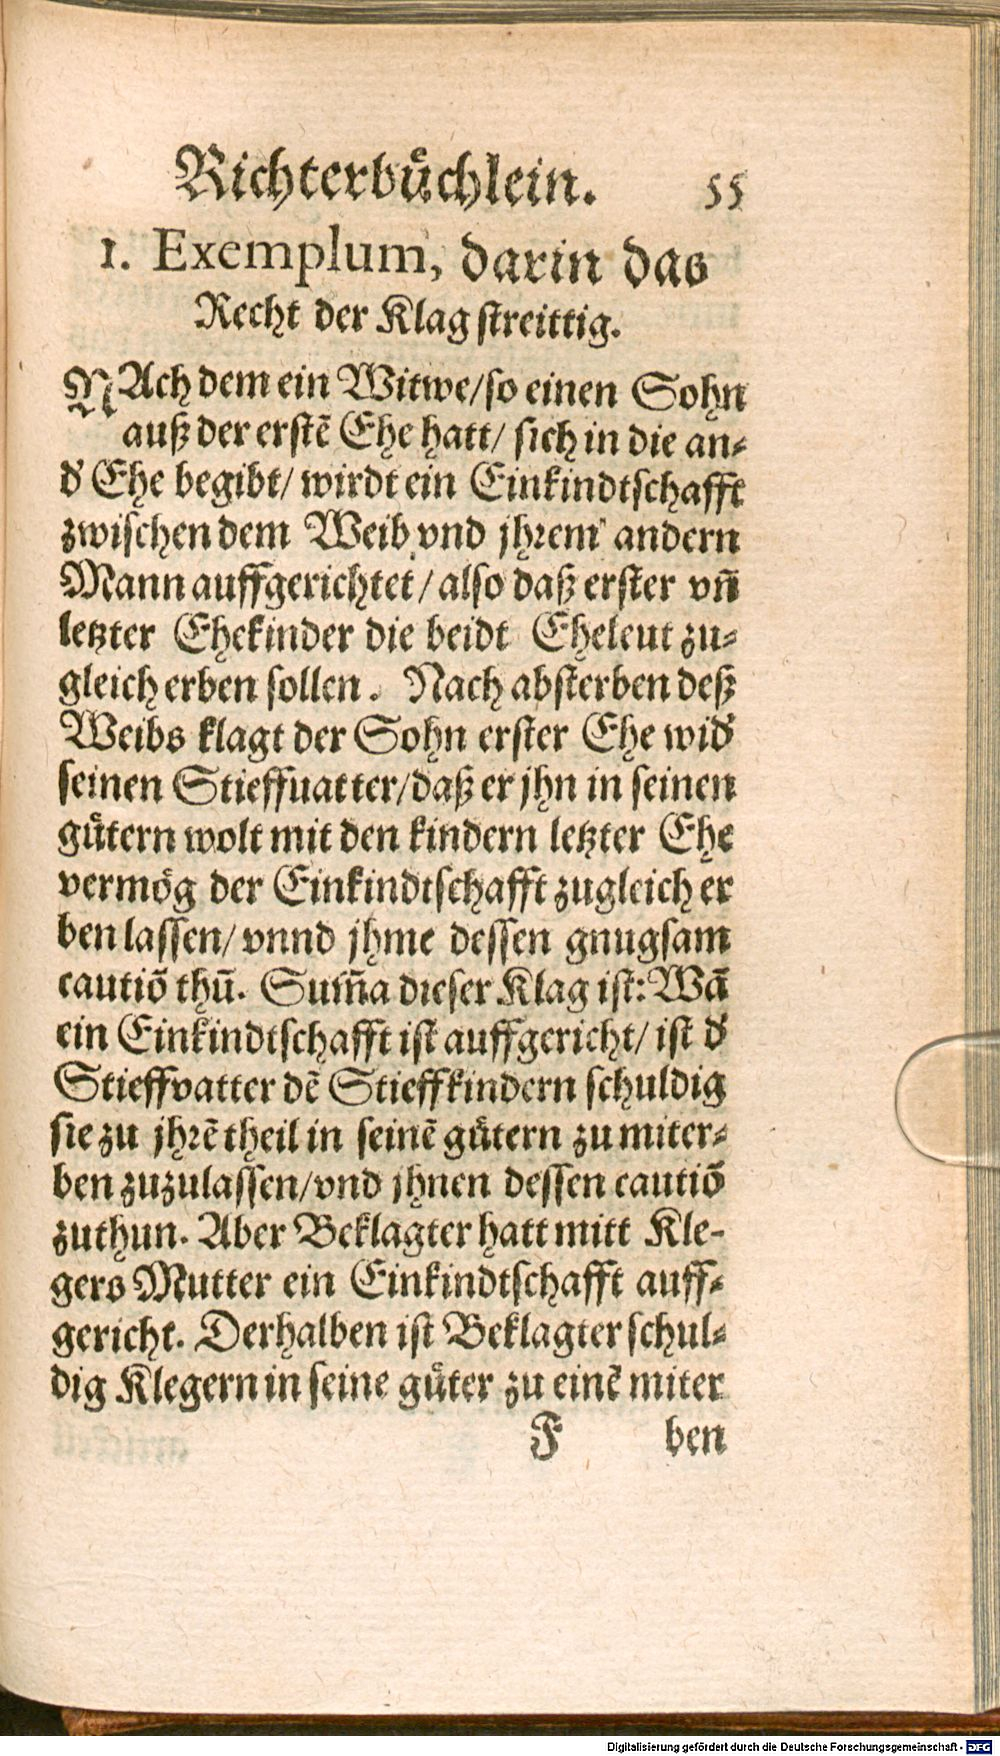 Richterbuͤchlein. 55
1. Exemplum, darin das
Recht der Klag streittig.
NAch dem ein Witwe/so einen Sohn
auß der erstē Ehe hatt/ sich in die an⸗
dˀ Ehe begibt/ wirdt ein Einkindtschafft
zwischen dem Weib vnd jhrem andern
Mann auffgerichtet/ also daß erster vñ
letzter Ehekinder die beidt Eheleut zu⸗
gleich erben sollen. Nach absterben deß
Weibs klagt der Sohn erster Ehe widˀ
seinen Stieffuatter/daß er jhn in seinen
guͤtern wolt mit den kindern letzter Ehe
vermoͤg der Einkindtschafft zugleich er
ben lassen/ vnnd jhme dessen gnugsam
cautiō thū. Sum̃a dieser Klag ist: Wā
ein Einkindtschafft ist auffgericht/ ist dˀ
Stieffvatter dē Stieffkindern schuldig
sie zu jhrē theil in seinē guͤtern zu miter⸗
ben zuzulassen/vnd jhnen dessen cautiō
zuthun. Aber Beklagter hatt mitt Kle-
gers Mutter ein Einkindtschafft auff⸗
gericht. Derhalben ist Beklagter schul⸗
dig Klegern in seine guͤter zu einē miter
F ben
Digitalisierung gefördert durch die Deutsche Forschungsgemeinschaft - DFG